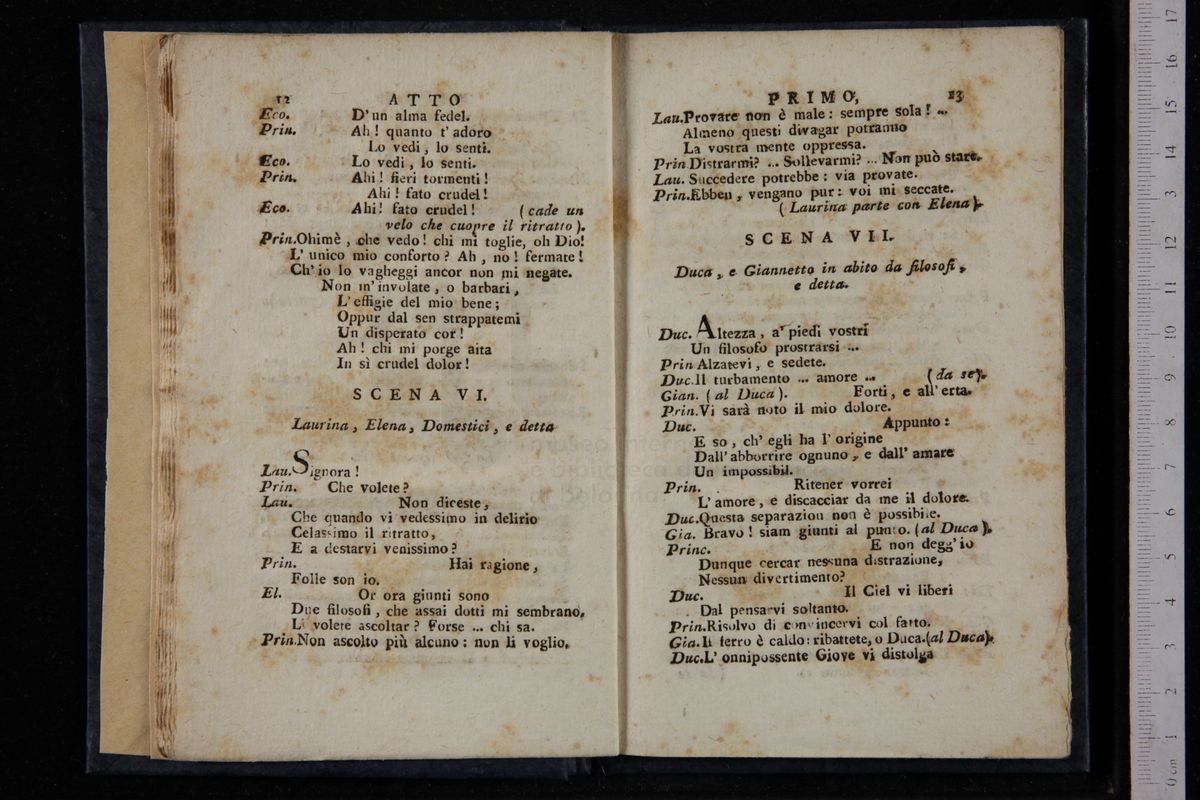 12 ATTO
Eco. D'un alma fedel.
Prin. Ah! quanto t'adoro
Lo vedi, lo senti.
Eco. Lo vedi, lo senti.
Prin. Ahi! fieri tormenti!
Ahi! fato crudel!
Eco. Ahi! fato crudel! (cade un
velo che cuopre il ritratto).
Prin.Ohimè, che vedo! chi mi toglie, oh Dio!
L'unico mio conforto? Ah, no! fermate!
Ch'io lo vagheggi ancor non mi negate.
Non m'involate, o barbari,
L'effigie del mio bene;
Oppur dal sen strappatemi
Un disperato cor!
Ah! chi mi porge aita
In sì crudel dolor!
SCENA VI.
Laurina, Elena, Domestici, e detta
Lau.Signora!
Prin. Che volete?
Lau. Non diceste,
Che quando vi vedessimo in delirio
Celassimo il ritratto,
E a destarvi venissimo?
Prin. Hai ragione,
Folle son io.
El. Or ora giunti sono
Due filosofi, che assai dotti mi sembrano.
Li volete ascoltar? Forse ... chi sa.
Prin.Non ascolto più alcuno: non li voglio.
PRIMO, 13
Lau.Provare non è male: sempre sola! ...
Almeno questi divagar potranno
La vostra mente oppressa.
Prin Distrarmi? ... Sollevarmi? ... Non può stare.
Lau. Succedere potrebbe: via provate.
Prin.Ebben, vengano pur: voi mi seccate.
(Laurina parte con Elena).
SCENA VII.
Duca, e Giannetto in abito da filosofi,
e detta.
Duc. Altezza, a' piedi vostri
Un filosofo prostrarsi ...
Prin Alzatevi, e sedete.
Duc.Il turbamento ... amore ... (da se).
Gian. (al Duca). Forti, e all'erta.
Prin.Vi sarà noto il mio dolore.
Duc. Appunto:
E so, ch'egli ha l'origine
Dall'abborrire ognuno, e dall'amare
Un impossibil.
Prin. Ritener vorrei
L'amore, e discacciar da me il dolore.
Duc.Questa separazion non è possibile.
Gia. Bravo! siam giunti al punto. (al Duca).
Princ. E non degg'io
Dunque cercar nessuna distrazione,
Nessun divertimento?
Duc. Il Ciel vi liberi
Dal pensarvi soltanto.
Prin.Risolvo di convincervi col fatto.
Gia.Il ferro è caldo: ribattete, o Duca.(al Duca).
Duc.L'onnipossente Giove vi distolga
museo inter
e biblioteca d
di bologna
0 cm 1 2 3 4 5 6 7 8 9 10 11 12 13 14 15 16 17